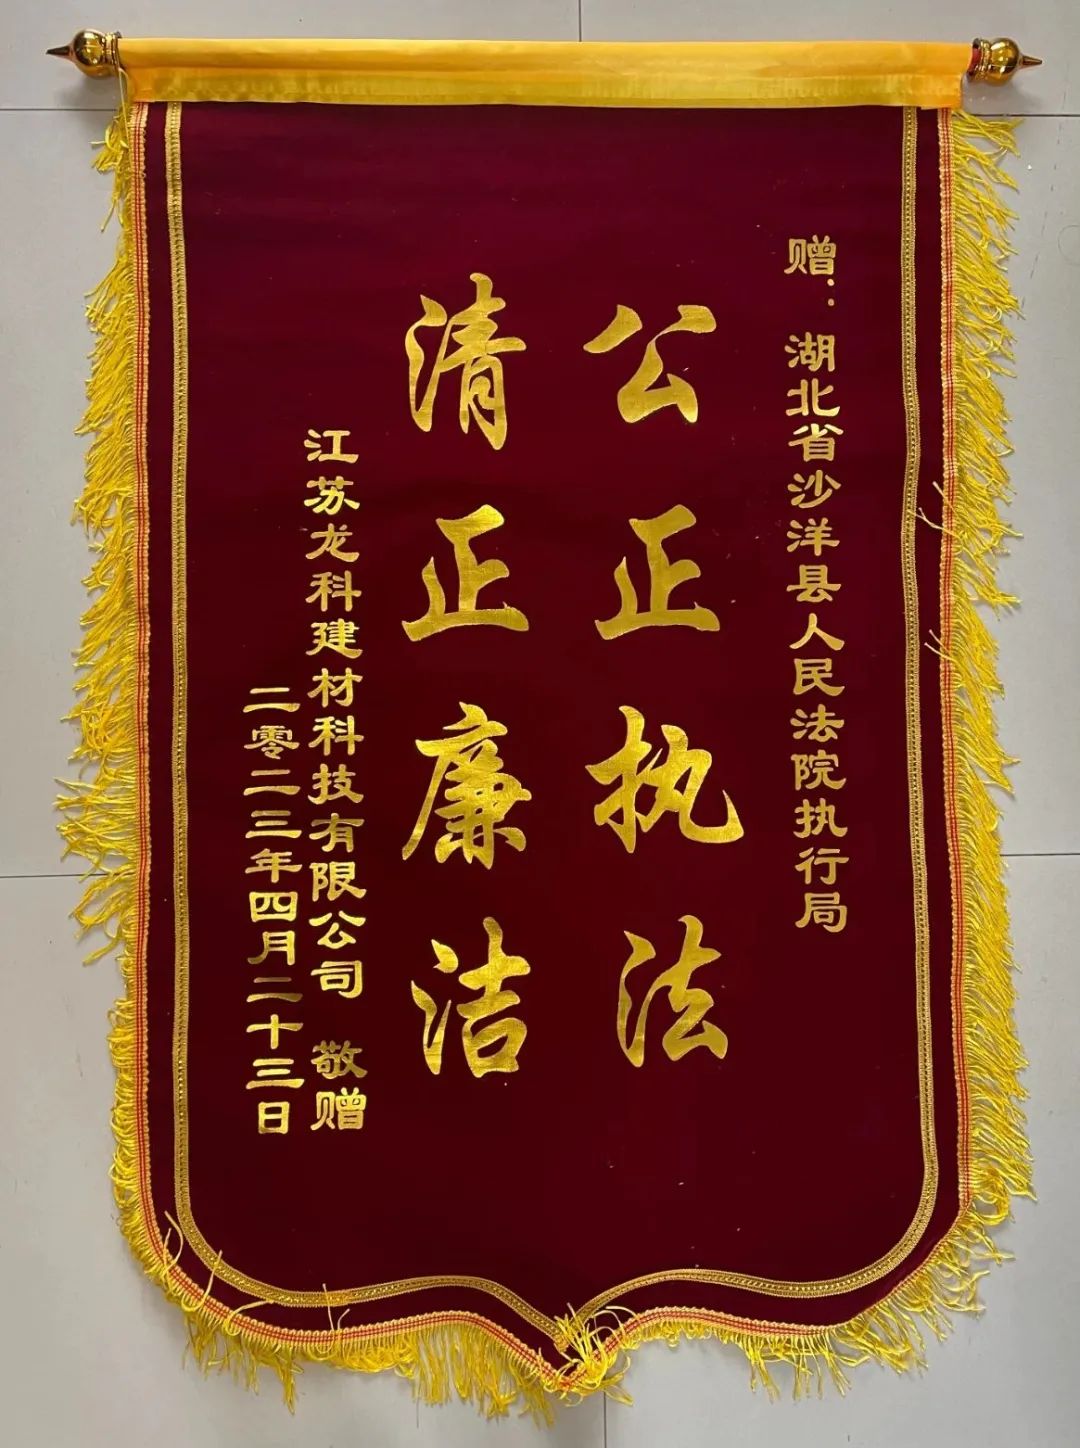 赠：湖北省沙洋县人民法院执行局
公正执法
清正廉洁
江苏龙科建材科技有限公司 敬赠
二零二三年四月二十三日